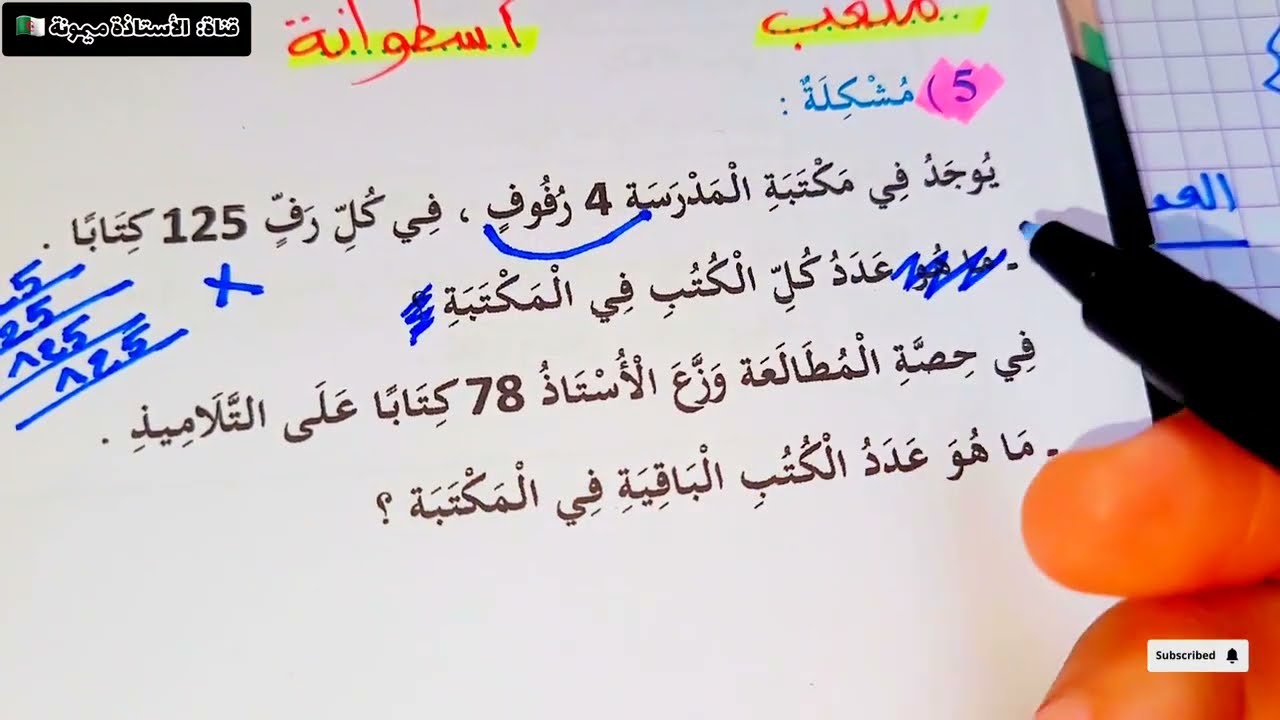 قناة: الأستاذة ميمونة
ملعب
أسطوانة
5) مُشْكِلَةٌ :
يُوجَدُ فِي مَكْتَبَةِ الْمَدْرَسَةِ 4 رُفُوفٍ ، فِي كُلِّ رَفٍّ 125 كِتَابًا .
- مَا هُوَ عَدَدُ كُلِّ الْكُتُبِ فِي الْمَكْتَبَةِ ؟
فِي حِصَّةِ الْمُطَالَعَة وَزَّعَ الْأُسْتَاذُ 78 كِتَابًا عَلَى التَّلَامِيذِ .
- مَا هُوَ عَدَدُ الْكُتُبِ الْبَاقِيَةِ فِي الْمَكْتَبَة ؟
×
25
125
125
Subscribed